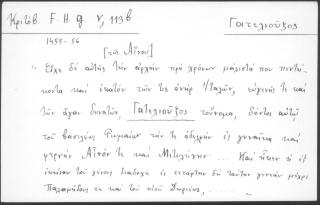 Κριτόβ. F. H. G V, 113b
Γατελιοῦζος
1455-56
[τῆς Αἴνου]
Εἶχε δὲ αὐτῆς τὴν ἀρχὴν πρὸ χρόνων μάλιστα που πεντή-
κοντα καὶ ἑκατὸν τῶν τις ἀνὴρ Ἰταλῶν, εὐγενής τε καὶ
τῶν ἄγαν δυνατῶν, Γατελιοῦζος τοὔνομα, δόντος αὐτῷ
τοῦ βασιλέως Ῥωμαίων τήν τε ἀδελφὴν ἐς γυναῖκα καὶ
φερνὴν Αἶνόν τε καὶ Μιτυλήνην ... Καὶ ἦν ἐξ
ἐκείνου τοῦ γένους διαδοχὴ ἐς τετάρτην δὴ ταύτην γενεὰν μέχρι
Παλαμήδους τε καὶ τοῦ υἱοῦ Δωριέως, ......